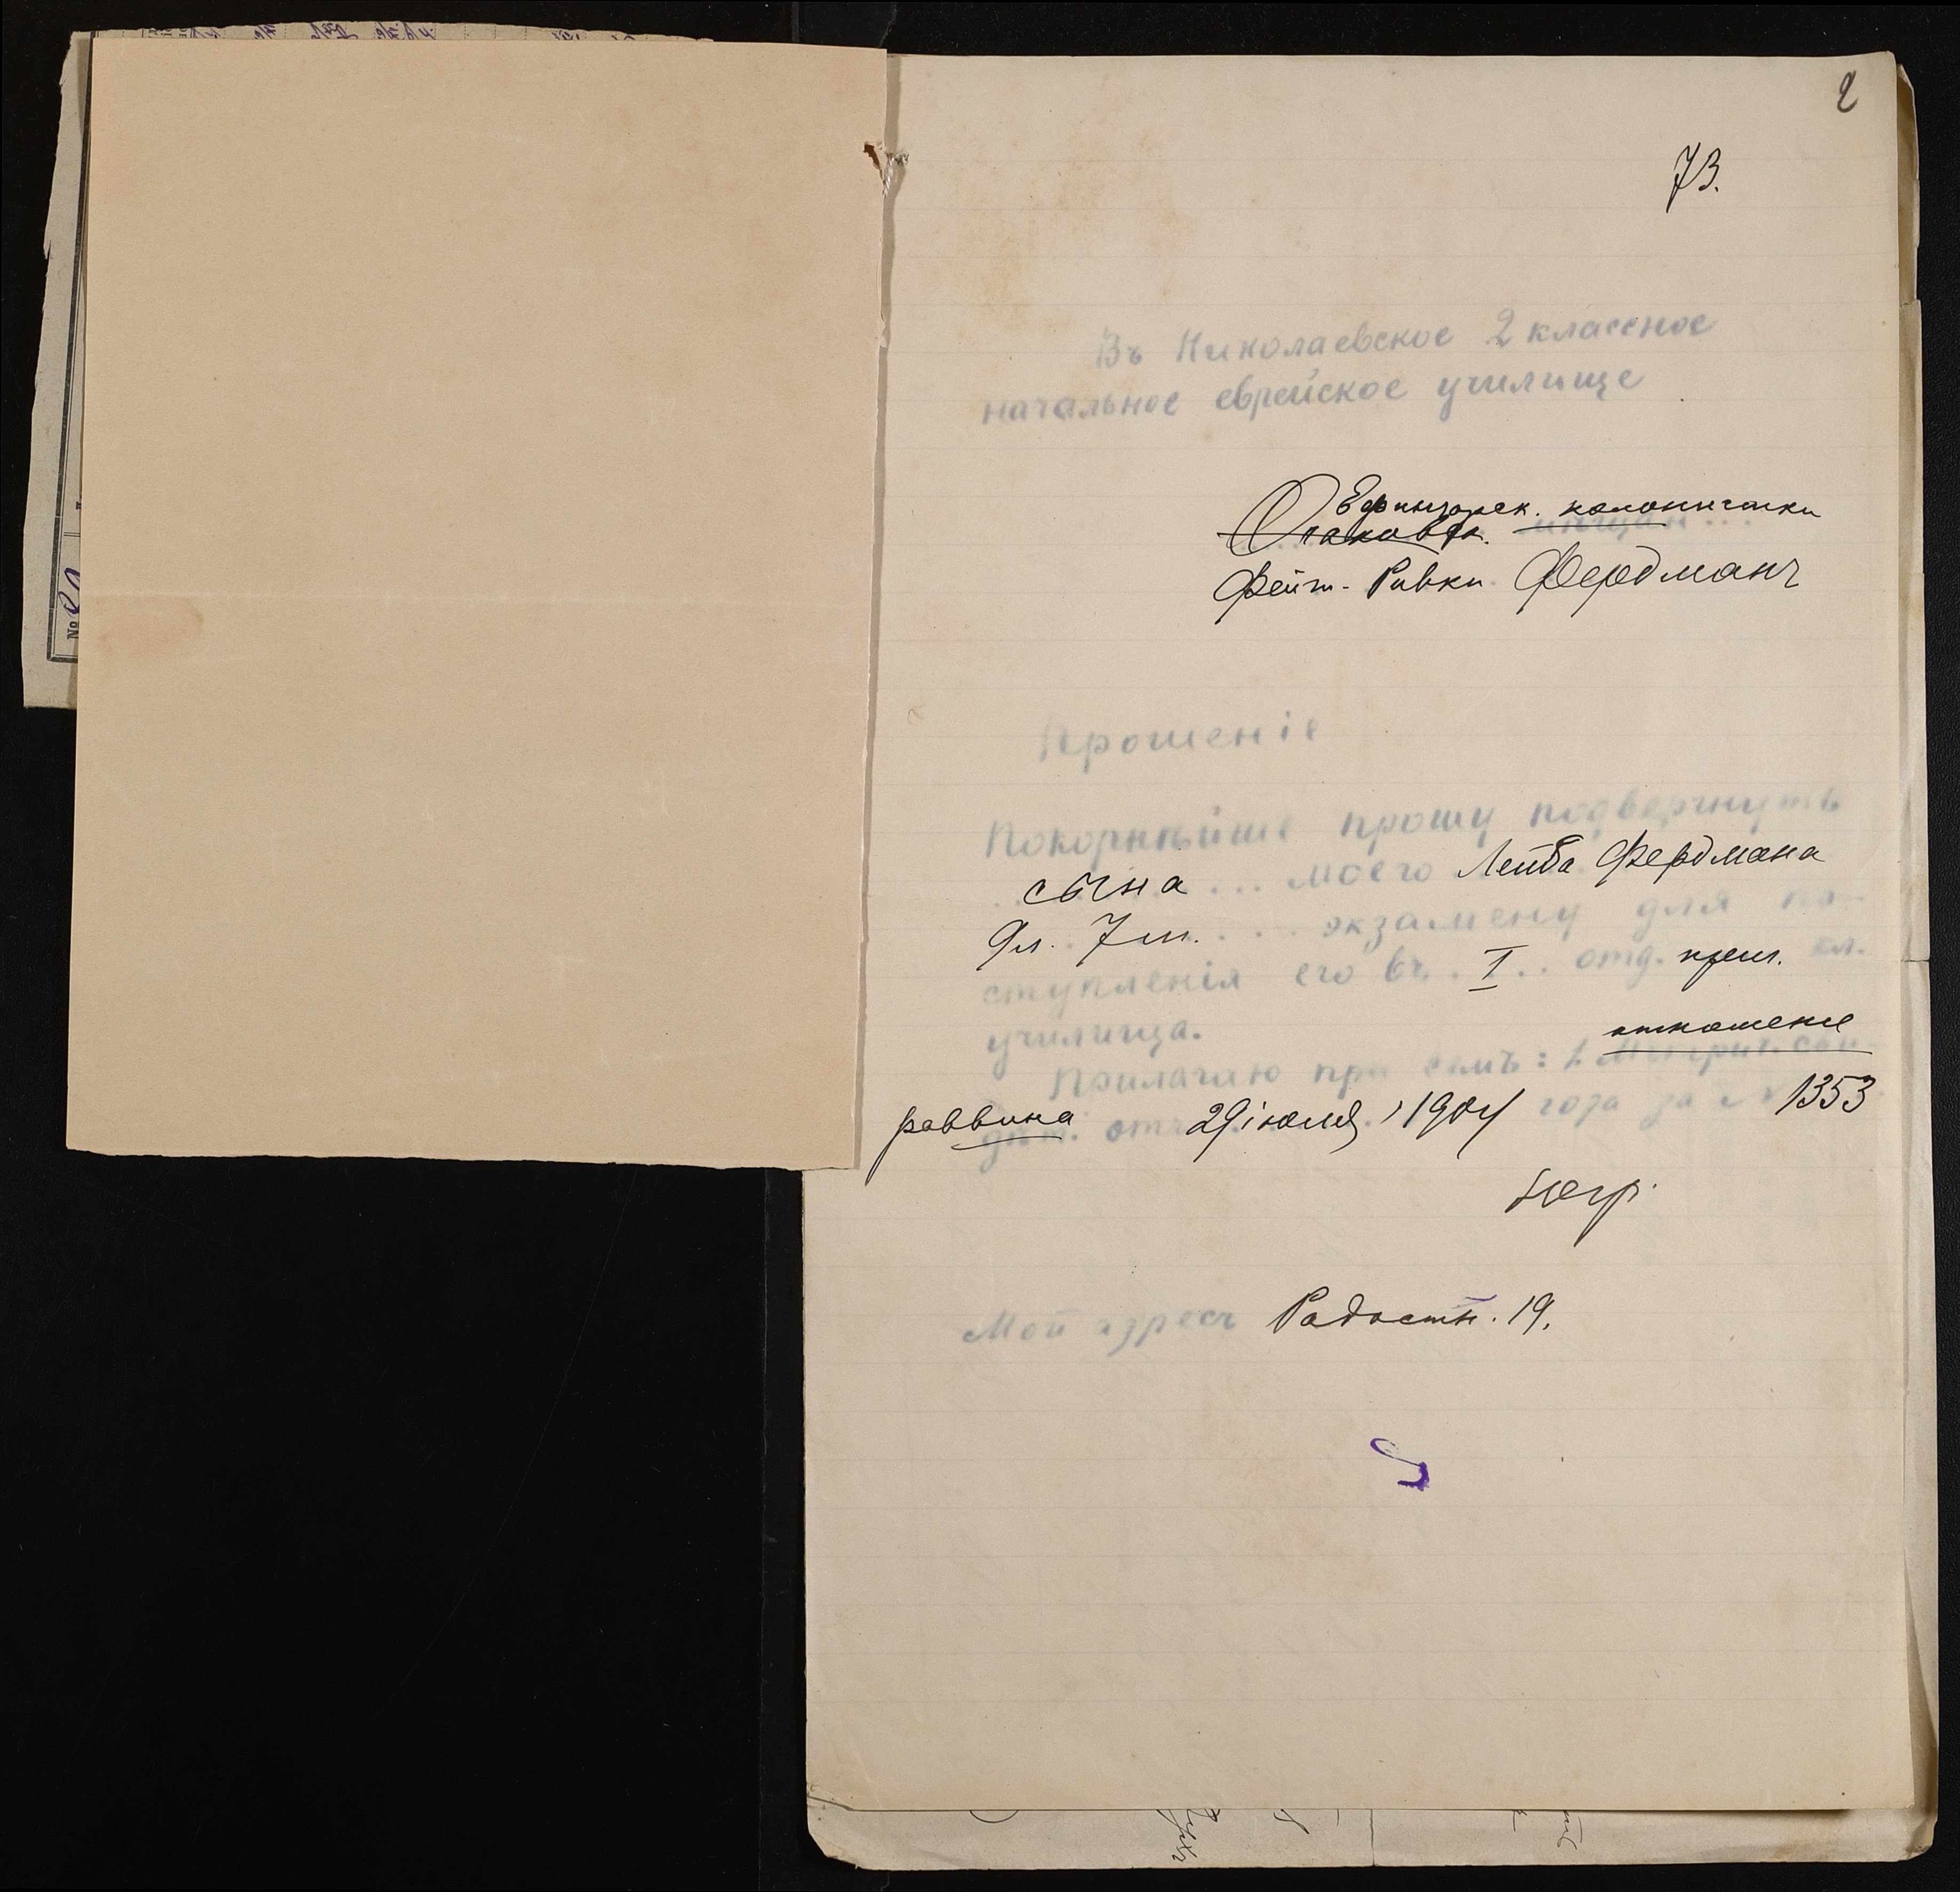 2
73.
Въ Николаевское 2 классное
начальное еврейское училище
Ефингарск. колонистки
Очаковск. мѣщан...
Фейги-Ривки Фердманъ
Прошеніе
Покорнѣйше прошу подвергнуть
сына ... моего Лейба Фердмана
9 л. 7 м. ... экзамену для по-
ступленія его въ . I .. отд. приг. кл.
училища.
отношеніе
Прилагаю при семъ: 1. Метрич. сви-
раввина
дѣт. отъ 29 іюля 1904 года за № 1353
Мой адресъ Радостн. 19.
№